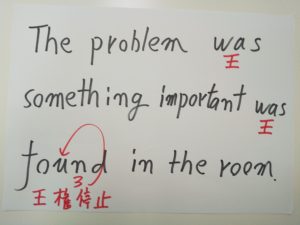 The problem was
王
something important was
王
found in the room.
3
王権停止